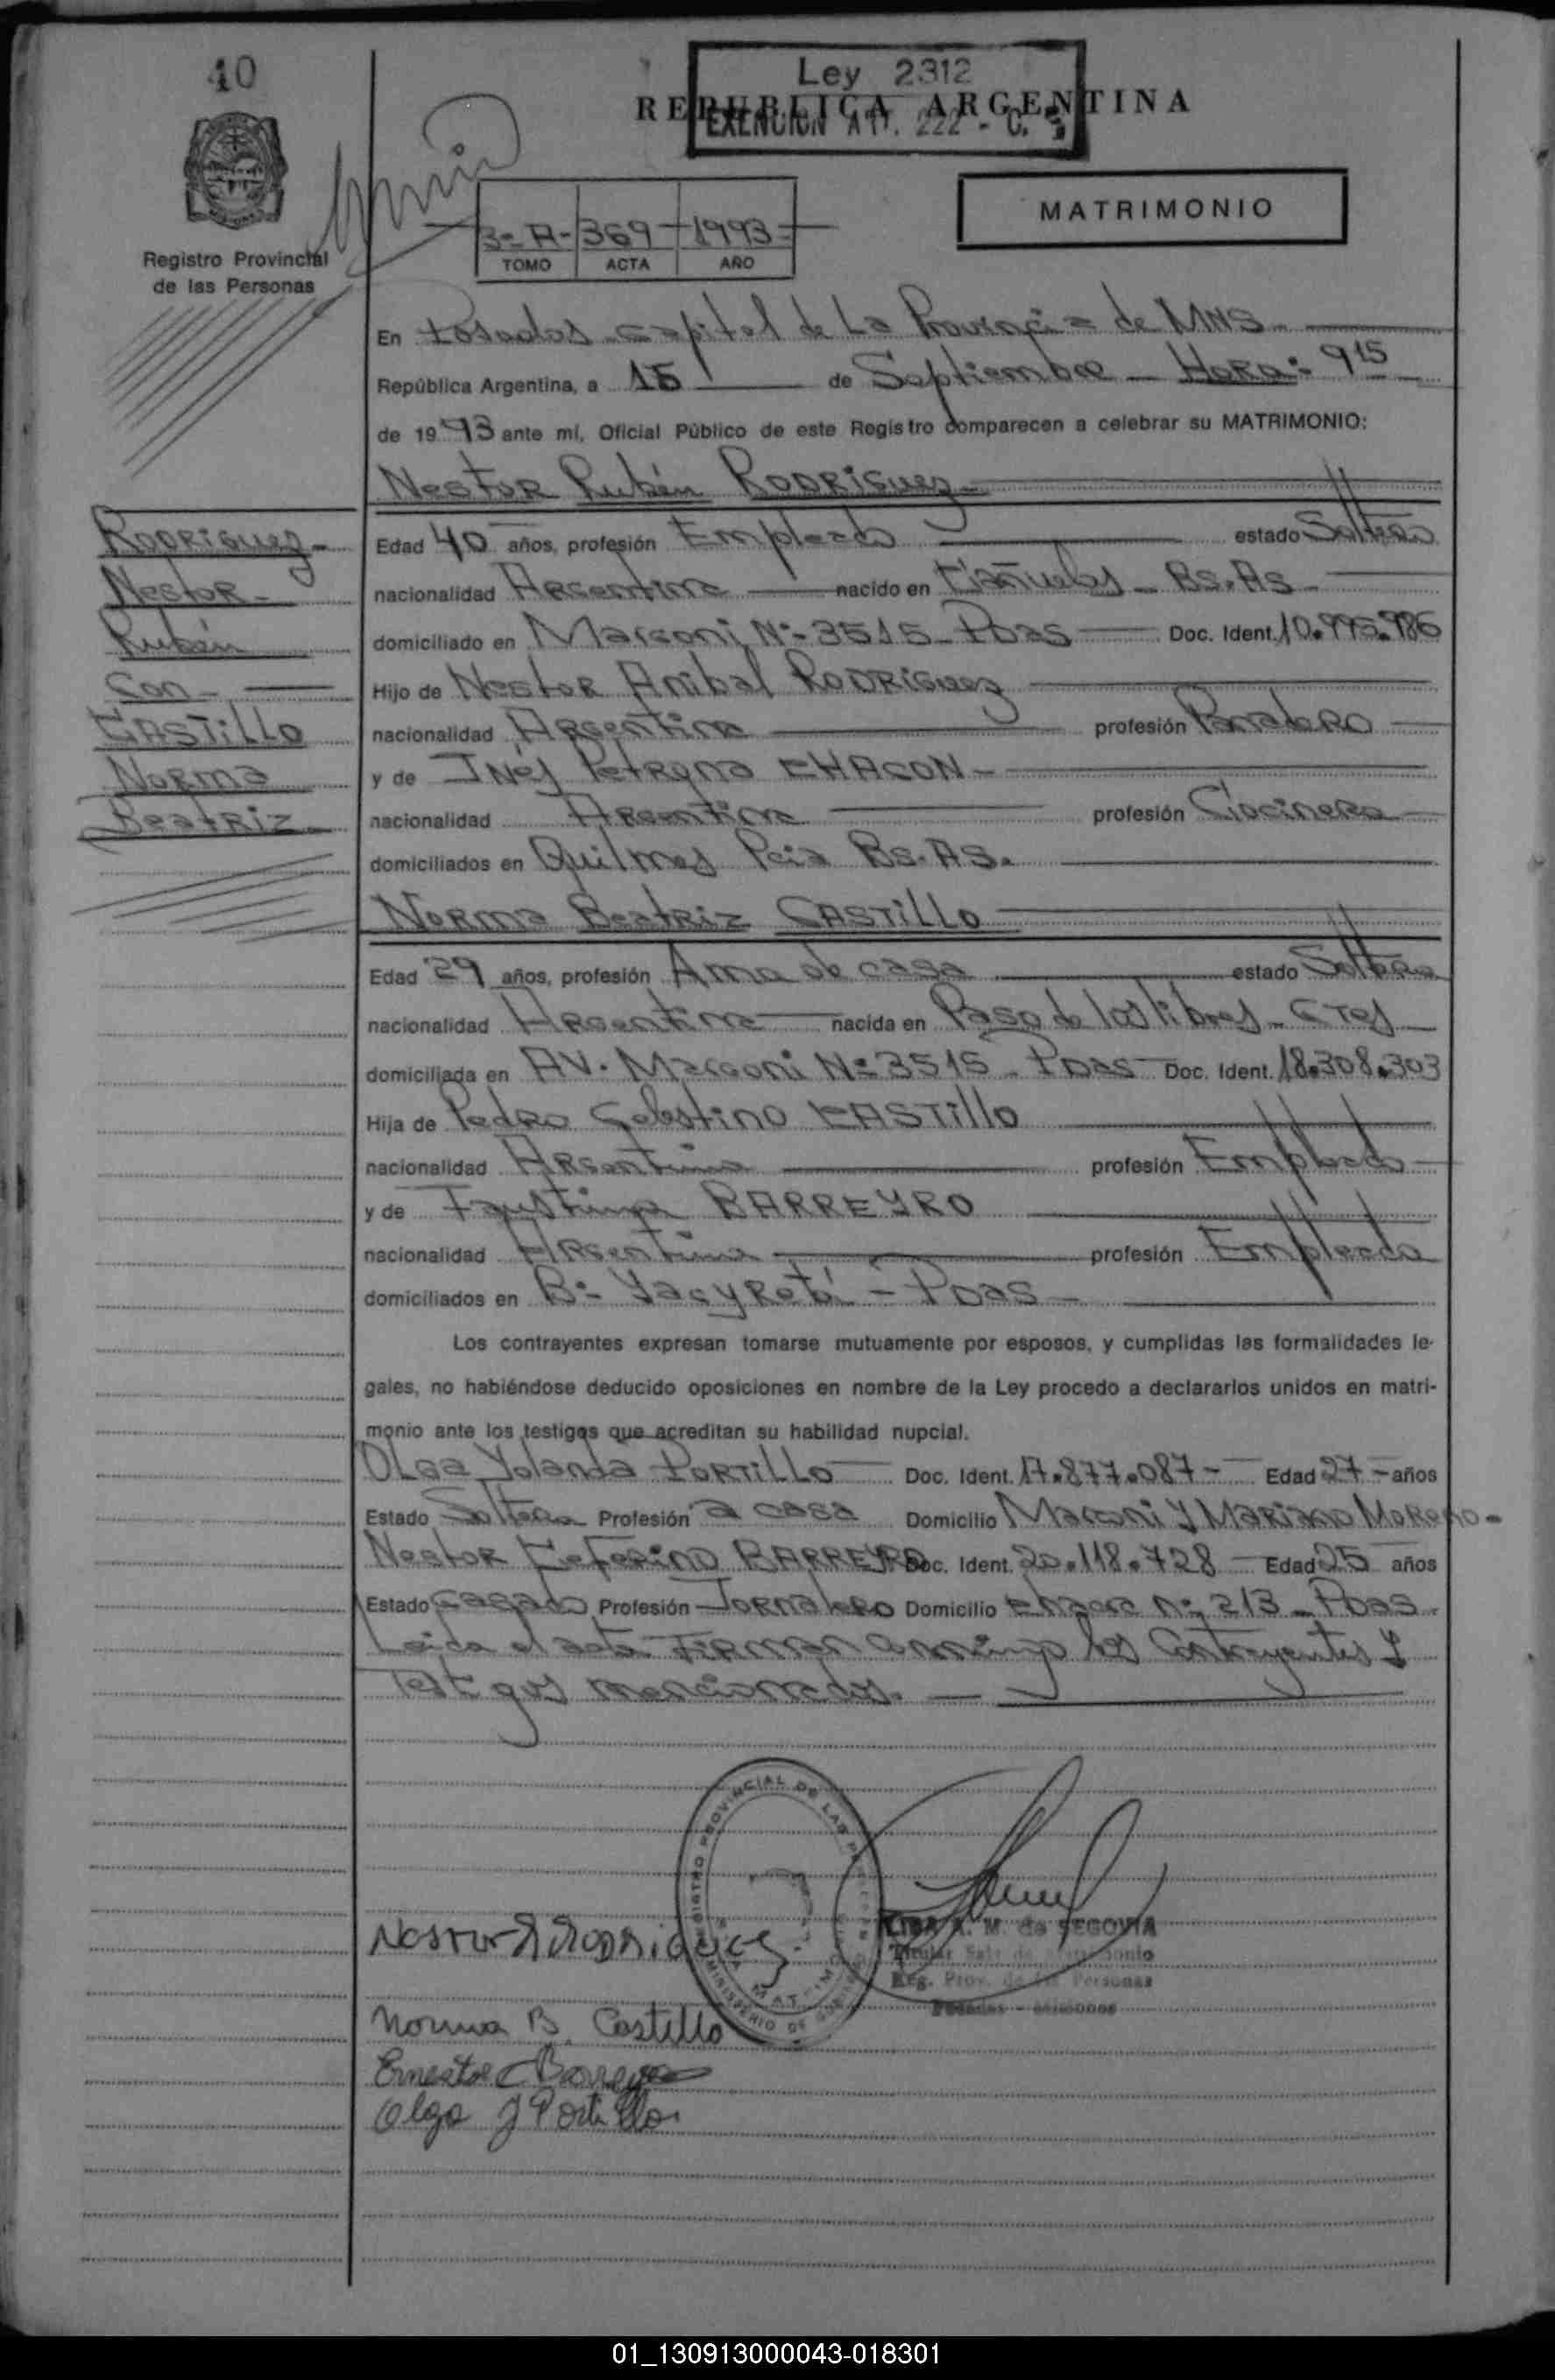 40
Ley 2312
REPUBLICA ARGENTINA
EXENCION ATr. 222 - C.
MATRIMONIO
3º-A- 369 1993
TOMO ACTA AÑO
Registro Provincial
de las Personas
En Posadas capital de La Provincia de MNS
República Argentina, a 15 de Septiembre - Hora: 9 15
de 1993 ante mí, Oficial Público de este Registro comparecen a celebrar su MATRIMONIO:
Nestor Rubén RODRIGUEZ
Rodriguez
Nestor
Rubén
Con
CASTILLO
Norma
Beatriz
Edad 40 años, profesión Empleado estado Soltero
nacionalidad Argentina nacido en Cañuelas - Bs.As
domiciliado en Marconi Nº 3515 - Pdas Doc. Ident. 10.995.986
Hijo de Nestor Anibal RODRIGUEZ
nacionalidad Argentina profesión Panadero
y de Inés Petrona CHACON
nacionalidad Argentina profesión Cocinera
domiciliados en Quilmes Pcia Bs.AS.
Norma Beatriz CASTILLO
Edad 29 años, profesión Ama de casa estado Soltera
nacionalidad Argentina nacida en Paso de los libres - CTes
domiciliada en AV. Marconi Nº 3515 - Pdas Doc. Ident. 18.308.303
Hija de Pedro Celestino CASTILLO
nacionalidad Argentina profesión Empleado
y de Faustina BARREYRO
nacionalidad Argentina profesión Empleada
domiciliados en Bº Yacyretá - Pdas
Los contrayentes expresan tomarse mutuamente por esposos, y cumplidas las formalidades le-
gales, no habiéndose deducido oposiciones en nombre de la Ley procedo a declararlos unidos en matri-
monio ante los testigos que acreditan su habilidad nupcial.
Olga Yolanda PORTILLO Doc. Ident. 17.877.087 - Edad 27 años
Estado Soltera Profesión a casa Domicilio Marconi y Mariano Moreno -
Nestor Ceferino BARREYRO Doc. Ident. 20.118.728 Edad 25 años
Estado Casado Profesión Jornalero Domicilio Chacra Nº 213 - Pdas
Leida el acta Firman conmigo los Contrayentes y
Testigos mencionados.
REGISTRO PROVINCIAL DE LAS
MINISTERIO DE
Nestor R Rodriguez
A. M. de SEGOVIA
Titular Sala de Matrimonio
Reg. Prov. de las Personas
Posadas - Misiones
Norma B. Castillo
Ernesto C Barreyro
Olga Y Portillo
01_130913000043-018301